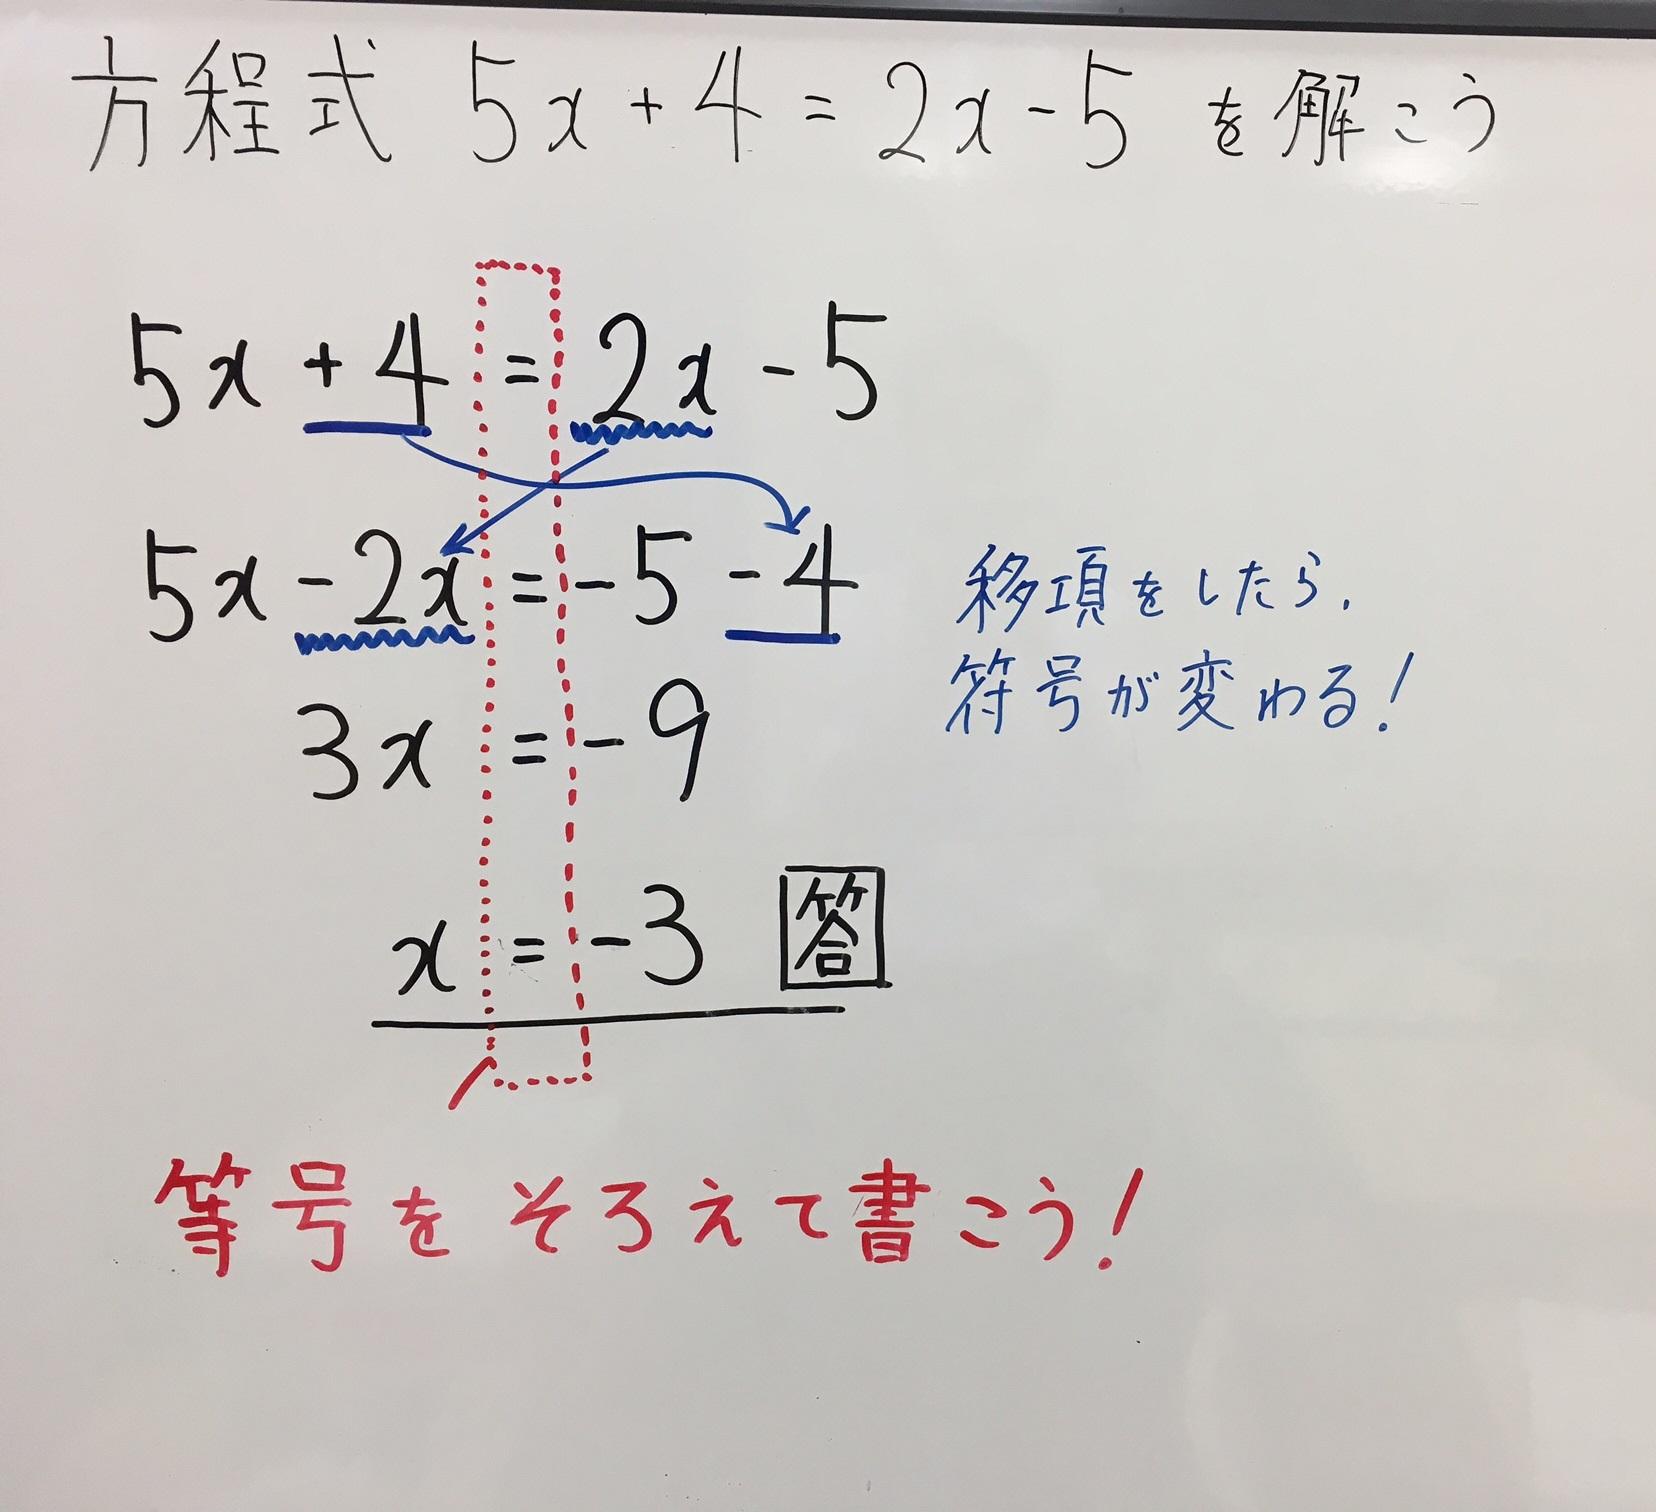 方程式 5x + 4 = 2x - 5 を解こう
5x + 4 = 2x - 5
5x - 2x = - 5 - 4
移項をしたら、
符号が変わる！
3x = - 9
x = - 3 答
等号をそろえて書こう！